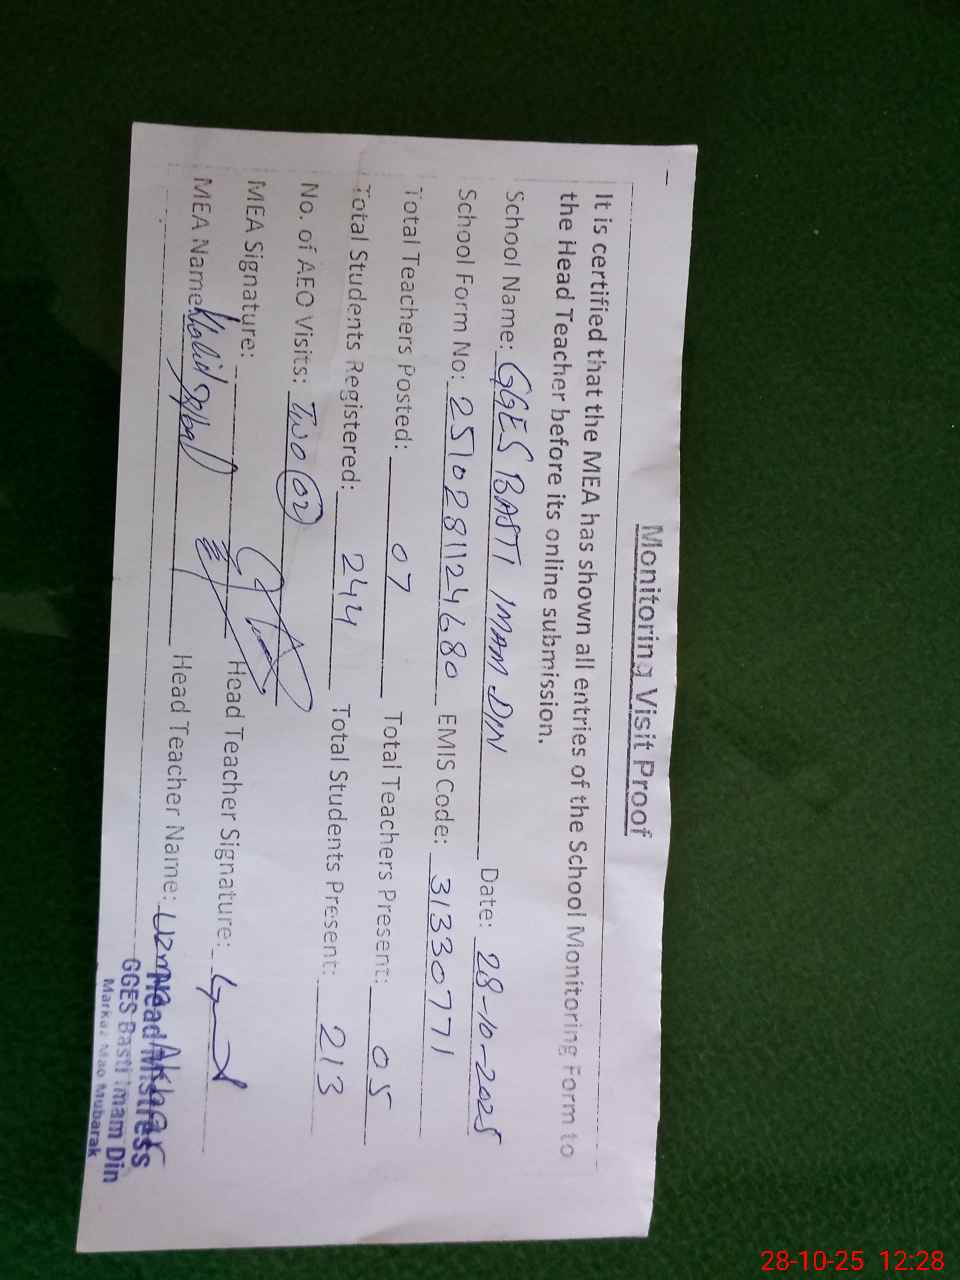 Monitoring Visit Proof
It is certified that the MEA has shown all entries of the School Monitoring Form to
the Head Teacher before its online submission.
School Name: GGES BASTI IMAM DIN Date: 28-10-2025
School Form No: 2510281124680 EMIS Code: 31330771
Total Teachers Posted: 07 Total Teachers Present: 05
Total Students Registered: 244 Total Students Present: 213
No. of AEO Visits: Two (02)
MEA Signature: Head Teacher Signature:
MEA Name Khalid Iqbal Head Teacher Name: Uzma Akhtar
Head Mistress
GGES Basti Imam Din
Markaz Mao Mubarak
28-10-25 12:28